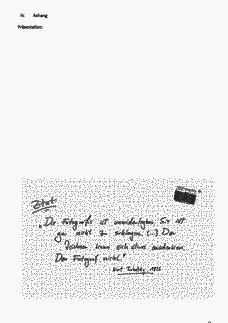 IV. Anhang
Präsentation:
Zitat:
„Die Fotografie ist unwiderlegbar. Sie ist
gar nicht zu schlagen. [...] Der
Zeichner kann sich etwas ausdenken.
Der Fotograf nicht."
Kurt Tucholsky, 1926